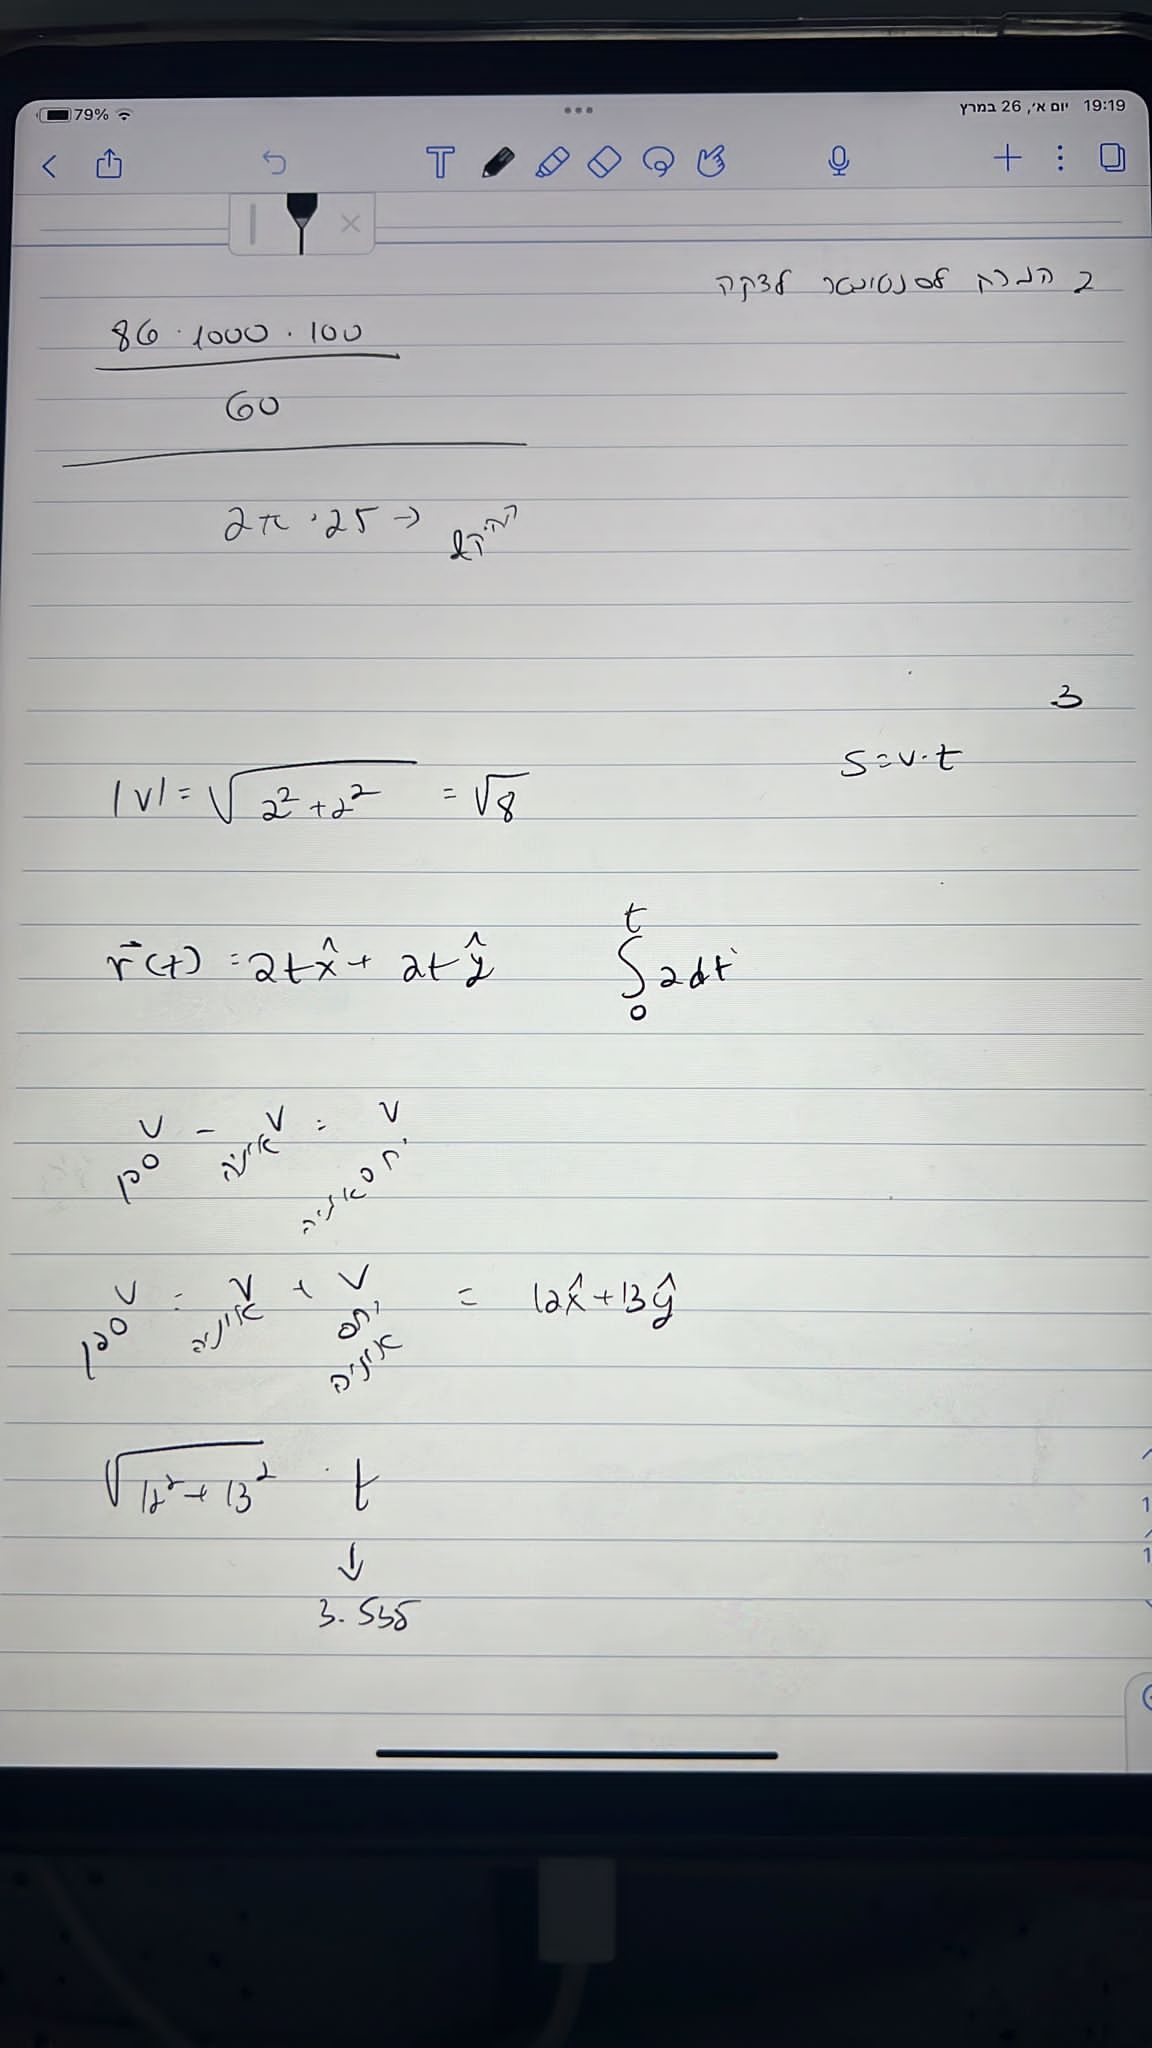 79%
19:19 יום א׳, 26 במרץ
2 המרת לסנטימטר לדקה
86 · 1000 · 100
60
2π · 25 → היקף
3
s = v · t
|v| = √2² + 2² = √8
r(t) = 2t x̂ + 2t ŷ ∫₀ᵗ 2dt
v סבן − v אוניה = v יחס אוניה
v סבן = v אוניה + v יחס אוניה = 12x̂ + 13ŷ
√12² + 13² · t
↓
3.535